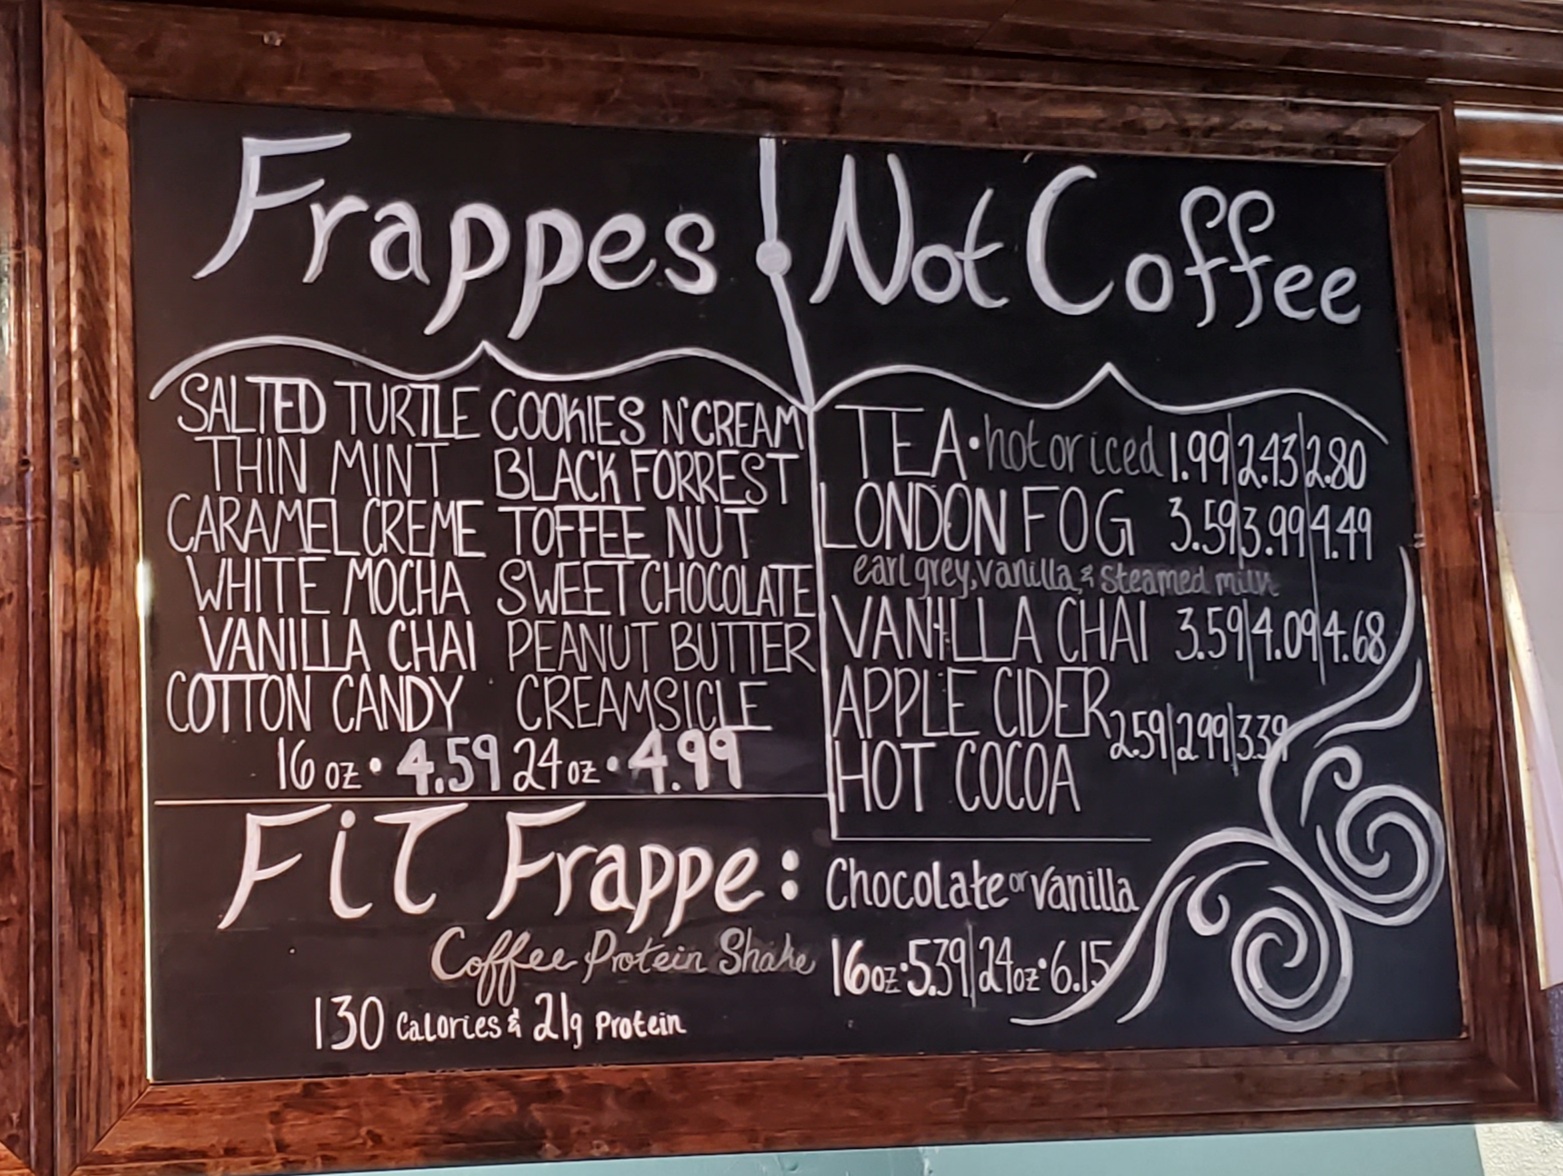 Frappes
SALTED TURTLE COOKIES N'CREAM
THIN MINT BLACK FORREST
CARAMEL CREME TOFFEE NUT
WHITE MOCHA SWEET CHOCOLATE
VANILLA CHAI PEANUT BUTTER
COTTON CANDY CREAMSICLE
16 oz • 4.59 24 oz • 4.99
Not Coffee
TEA • hot or iced 1.99|2.43|2.80
LONDON FOG 3.59|3.99|4.49
earl grey, vanilla, & steamed milk
VANILLA CHAI 3.59|4.09|4.68
APPLE CIDER
HOT COCOA 2.59|2.99|3.39
FiT Frappe: Chocolate or Vanilla
Coffee Protein Shake 16oz • 5.39|24oz • 6.15
130 Calories & 21g Protein